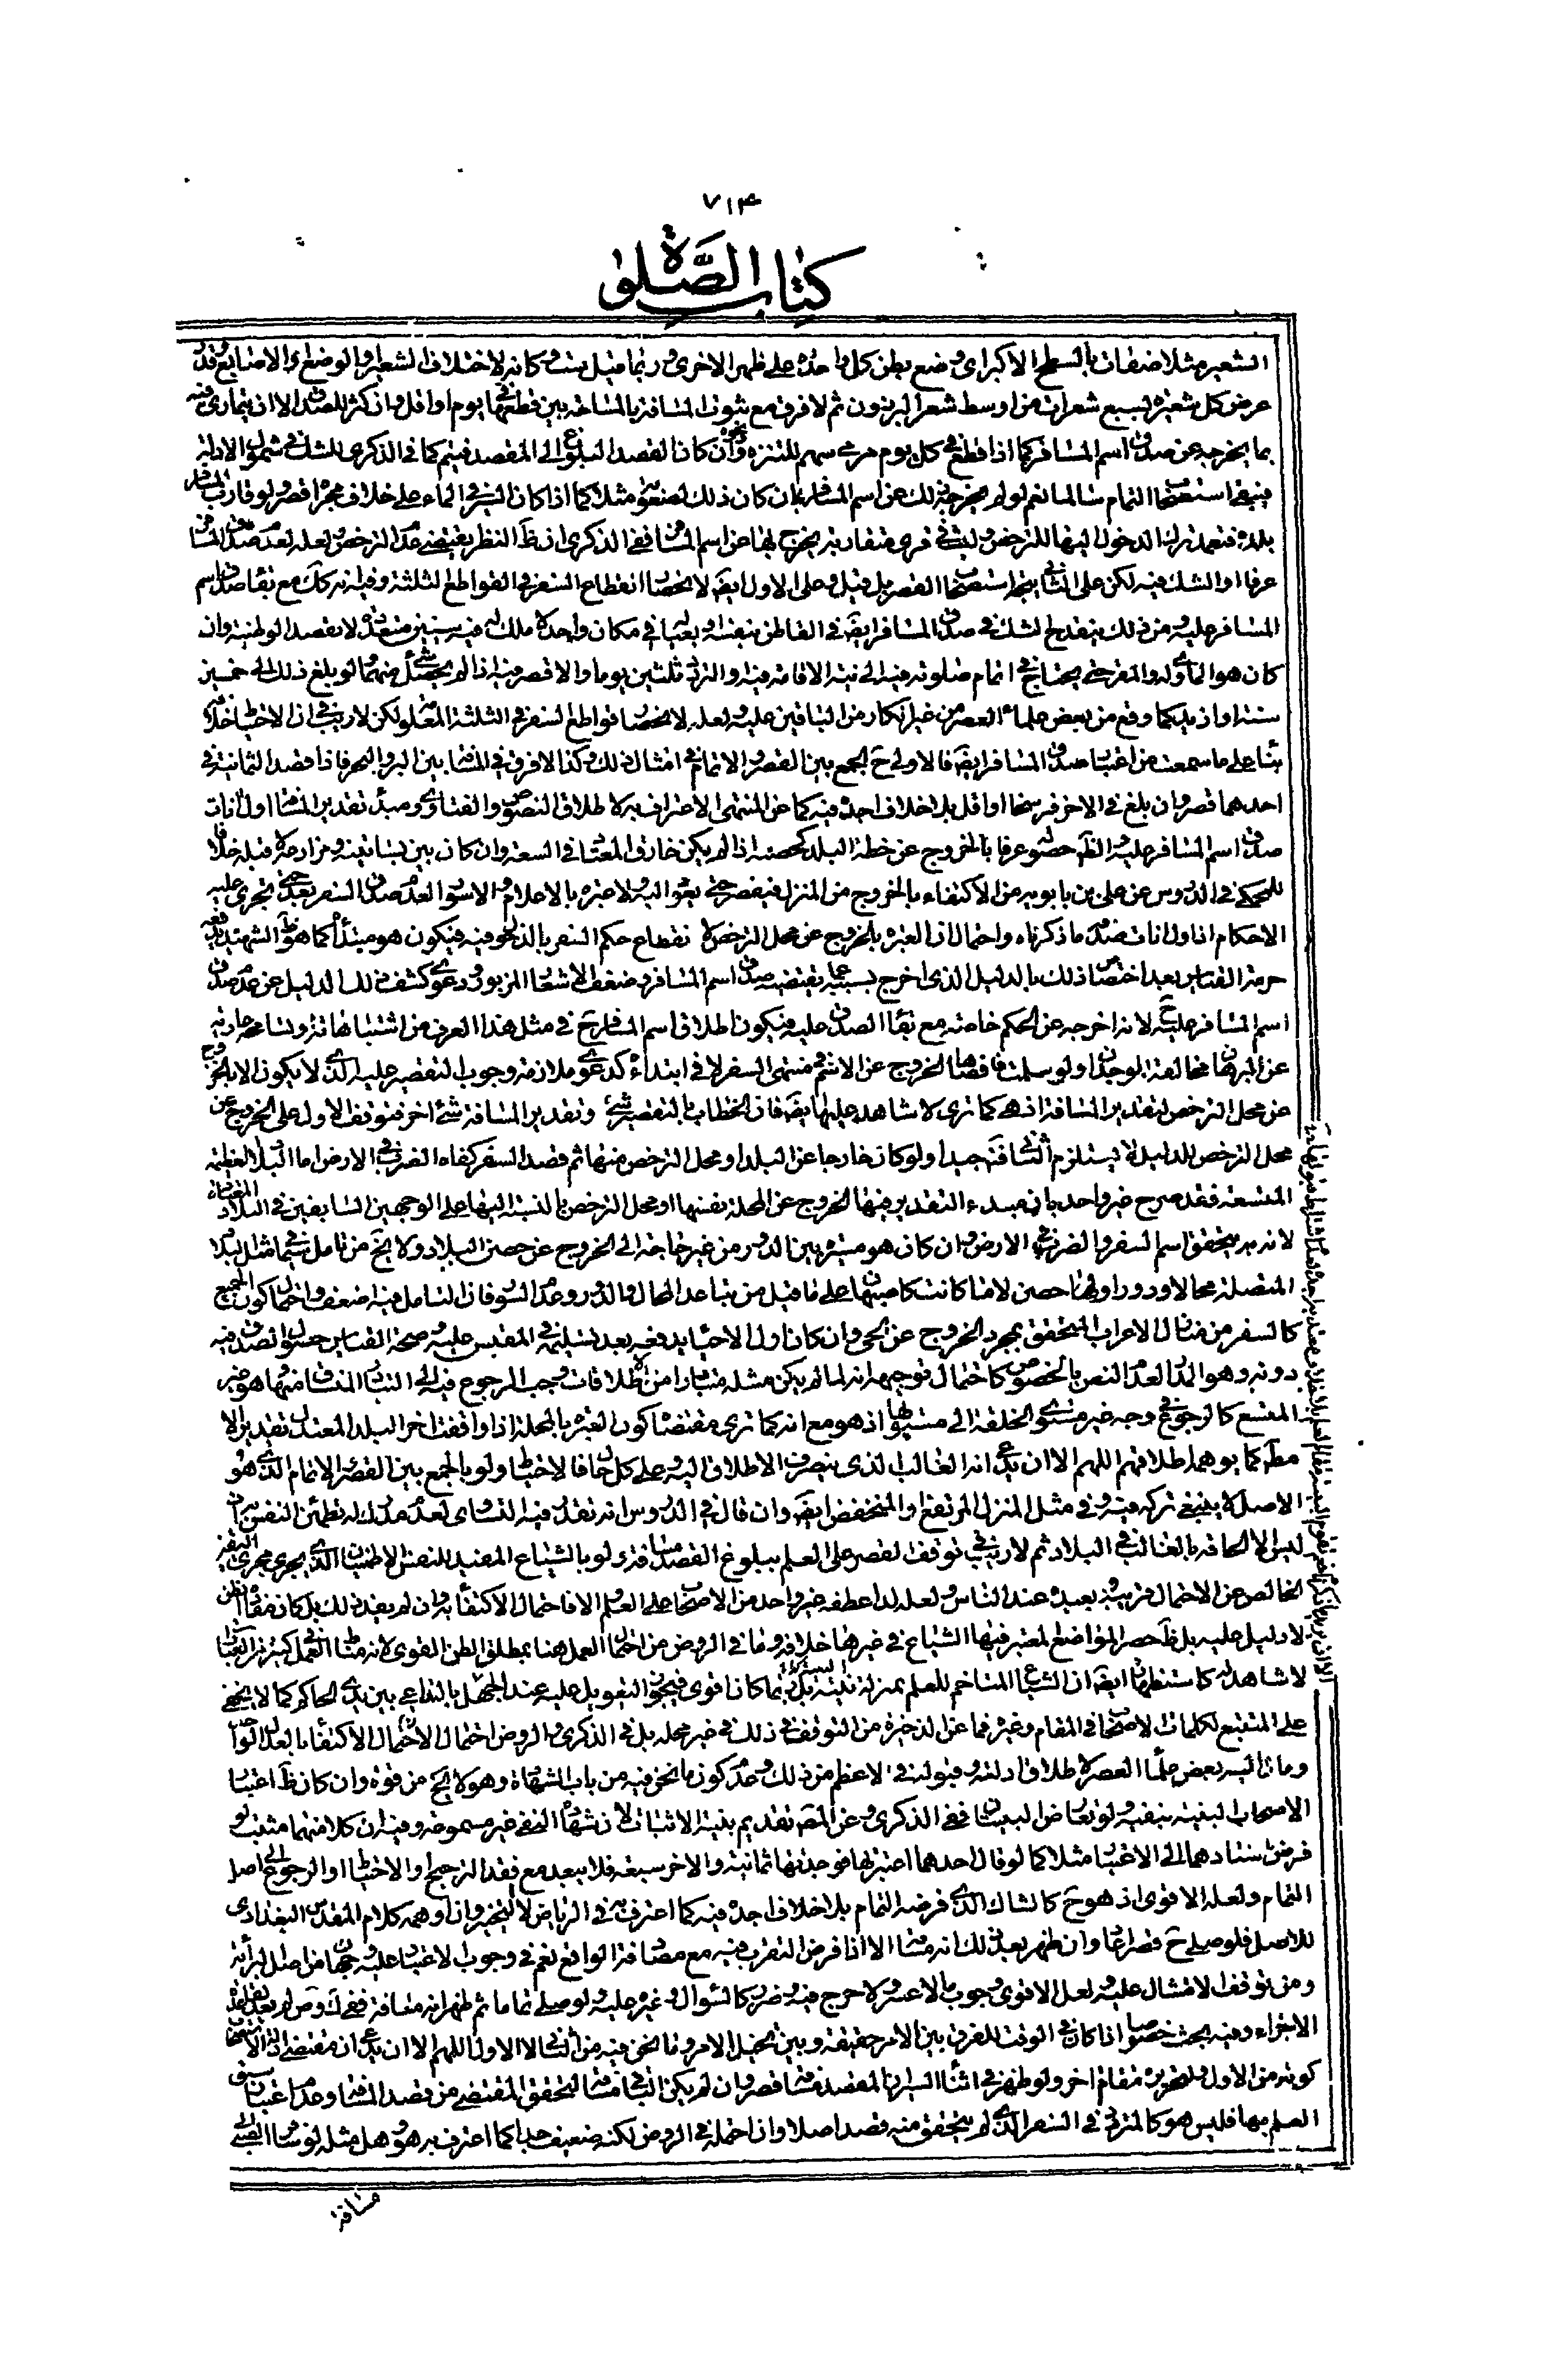 ٧١٤
كتاب الصلوة
الشعير مثلا صفات بالسطح الاكبر اى وضع بطن كل واحدة على ظهر الاخرى و ربما قيل ست و كانه لاختلاف الشعير والوضع او الاصابع وقدر
عرض كل شعيرة بسبع شعرات من اوسط شعر البرزون ثم لا فرق مع ثبوت المسافة بالمساحة بين قطعها فى يوم او اقل او اكثر للصدق الا ان يتمارى فيه
بما يخرجه عن صدق اسم المسافر كما اذا قطع فى كل يوم سهم للتنزه ونحوه وان كان القصد البلوغ الى المقصد فيتم كما فى الذكرى للشك فى شمول الادلة
ينبغى استصحاب التمام سالما نعم لو لم يخرج بذلك عن اسم المسافر بان كان ذلك لصعوبة مثلا كما اذا كان السير فى الماء على خلاف مجراه قصر ولو قارب المسافر
بلده فتعمد ترك الدخول اليها للترخص ولبث فى قرى متقاربة يخرج بها عن اسم المسافر ففى الذكرى ان ظ النظر يقتضى عدم الترخص ولعله لعدم صدق المسافر
عرفا او الشك فيه لكن على الثانى يتجه استصحاب القصر بل قيل وعلى الاول ايضا لانحصار انقطاع السفر فى القواطع الثلثة وفيه انه كك مع بقاء صدق اسم
المسافر عليه ومن ذلك ينقدح الشك فى صدق المسافر ايضا فى القاطن بنفسه او بعياله فى مكان واحد لا ملك له فيه سنين متعددة لا بقصد الوطنية وان
كان هو الماوى له والمقر حتى يحتاج فى اتمام صلوته فيه الى نية الاقامة فيه والتردد ثلثين يوما والا قصر فيه اذا لم يحصل شئ منهما ولو بلغ ذلك الى خمسين
سنة او ازيد كما وقع من بعض علماء العصر من غير انكار من الباقين عليه ولعله لانحصار قواطع السفر فى الثلثة المعلومة لكن لا ريب فى ان الاحتياط خلافه
بناء على ما سمعت من اعتبار صدق المسافر ايضا فالاولى ح الجمع بين القصر والاتمام فى امثال ذلك وكذا لا فرق فى المسافة بين البر والبحر فاذا قصد الثمانية فى
احدهما قصر وان بلغ فى الاخر فرسخا او اقل بلا خلاف اجده فيه كما عن المنتهى الاعتراف به لاطلاق النصوص والفتاوى ومبدء تقدير المسافة اول انات
صدق اسم المسافر عليه والظ حصوله عرفا بالخروج عن خطة البلد كحصنه اذا لم يكن خارق المعتاد فى السعة وان كان بين بساتينه ومزارعه لا قبله خلافا
للمحكى فى الدروس عن على بن بابويه من الاكتفاء بالخروج من المنزل فيقصر حتى يعود اليه ولا عبرة بالاعلام والاسوار لعدم صدق السفر بعد حتى تجرى عليه
الاحكام اذ اول انات صدقه ما ذكرناه واحتمال ان العبرة بالخروج عن محل الترخص لانقطاع حكم السفر بالدخول فيه فيكون هو مبتداه كما هو ظ الشهيد يدفعه
حرمة القياس بعد اختصاص ذلك بالدليل الذى اخرج بسببه عما يقتضيه صدق اسم المسافر وضعف الاشعار المزبور ودعوى كشف ذلك الدليل عن عدم صدق
اسم المسافر عليه لا انه اخرجه عن الحكم خاصة مع بقاء الصدق عليه فيكون اطلاق اسم المسافر ح فى مثل هذا العرف من اشتباهاته وتسامحه عارية
عن البرهان مخالفة للوجدان ولو سلمت فاقصاها الخروج عن الاسم فى منتهى السفر لا فى ابتداءه كدعوى ملازمة وجوب التقصير عليه الذى لا يكون الا بالخروج
عن محل الترخص لتقدير المسافة اذ هى كما ترى لا شاهد عليها ايضا فان الخطاب بالتقصير شئ وتقدير المسافة شئ اخر فتوقف الاول على الخروج عن
محل الترخص للدليل لا يستلزم الثانى فتامل جيدا ولو كان خارجا عن البلد او محل الترخص منها ثم قصد السفر كفاه الضرب فى الارض اما البلاد العظيمة
المتسعة فقد صرح غير واحد بان مبدء التقدير فيها الخروج عن المحلة نفسها او محل الترخص بالنسبة اليها على الوجهين السابقين فى البلاد المعتادة
لانه به يتحقق اسم السفر والضرب فى الارض وان كان هو مسيره بين الدور من غير حاجة الى الخروج عن حصن البلاد ولا يخ من تامل سيما فى مثل البلاد
المتصلة محالا ودورا ولها حصن لا ما كانت كاصبهان على ما قيل من تباعد المحال والدور وعدم السور فان التامل فيه اضعف واحتمال كون الجميع
كالسفر من منازل الاعراب المتحقق بمجرد الخروج عن الحى وان كان اول الاحياء يدفعه بعد تسليمه فى المقيس عليه وصحة القياس حصول الصدق فيه
دونه وهو المدار لعدم النص بالخصوص كاحتمال توجيهه انه لما لم يكن مثله متبادرا من الاطلاقات وجب الرجوع فيه الى التبادر المنساق منها وهو غير
المتسع كالرجوع فى وجه غير مستوى الخلقة الى مستويها اذ هو مع انه كما ترى مقتضاه كون العبرة بالمحلة اذا وافقت اخر البلد المعتدل تقديرا لا
مط كما يوهمه اطلاقهم اللهم الا ان يدعى انه الغالب الذى ينصرف الاطلاق اليه وعلى كل حال فالاحتياط ولو بالجمع بين القصر والاتمام الذى هو
الاصل لا ينبغى تركه فيه وفى مثل المنزل المرتفع والمنخفض ايضا وان قال فى الدروس انه نقدر فيه التساوى لعدم مدرك له تطمئن النفس به
ليس الا الحاقه بالغالب فى البلاد ثم لا ريب فى توقف القصر على العلم ببلوغ القصد مسافة ولو بالشياع المفيد للنفس الاطمينان الذى يجرى مجرى اليقين
الخالص عن الاحتمال قريبه وبعيده عند الناس ولعله لذا عطفه غير واحد من الاصحاب على العلم والا فاحتمال الاكتفاء به وان لم يفد ذلك بل كان مفاده الظن
لا دليل عليه بل ظ حصر المواضع المعتبر فيها الشياع فى غيرها خلافه وما فى الروض من احتمال العمل هنا بمطلق الظن القوى لانه مناط العمل فى كثير من العبادات
لا شاهد له كاستظهاره ايضا ان الشياع المتاخم للعلم بمنزلة البينة بل ربما كان اقوى فيجوز التعويل عليه عند الجهل بالتداعى بين يدى الحاكم كما لا يخفى
على المتتبع لكلمات الاصحاب فى المقام وغيره فما عن الذخيرة من التوقف فى ذلك فى غير محله بل فى الذكرى والروض احتمال الاكتفاء بالعدل الواحد
وما ل اليه بعض علماء العصر لاطلاق ادلته وقبوله فى الاعظم من ذلك وعدم كون ما نحن فيه من باب الشهادة وهو لا يخ من قوة وان كان ظ اعتبار
الاصحاب البينة ينفيه ولو تعارض البينتان ففى الذكرى وعن المعتبر تقديم بينة الاثبات لان شهادة النفى غير مسموعة وفيه ان كلا منهما مثبت لو
فرض استنادهما الى الاعتبار مثلا كما لو قال احدهما اعتبرتها فوجدتها ثمانية والاخر سبعة فلا يبعد مع فقد الترجيح او الاحتياط او الرجوع الى اصل
التمام ولعله الاقوى اذ هو ح كالشاك الذى فرضه التمام بلا خلاف اجده فيه كما اعترف به فى الرياض لا التخيير وان اوهمه كلام المقدس البغدادى
للاصل فلو صلى ح قصرا اعاد وان ظهر بعد ذلك انه مسافة الا اذا فرض التقرب فيه مع مصادفة الواقع نعم فى وجوب الاعتبار عليه وجهان من اصل البرائة
ومن توقف الامتثال عليه ولعل الاقوى وجوب ما لا عسر ولا حرج فيه وضرر كالسؤال وغيره عليه ولو صلى تماما ثم ظهر انه مسافة ففى ك وض لم يعد لقاعدة
الاجزاء وفيه بحث خصوصا اذا كان فى الوقت للفرق بين الامر حقيقة وبين تخيل الامر وما نحن فيه من الثانى لا الاول اللهم الا ان يدعى ان مقتضى الاستصحاب
كونه من الاول ولتحريره مقام اخر ولو ظهر فى اثناء السير ان المقصد مسافة قصر وان لم يكن الباقى مسافة لتحقق المقتضى من قصد المسافة وعدم اعتبار سبق
العلم بها فليس هو كالمتردد فى السفر الذى لم يتحقق منه قصد اصلا وان احتمله فى الروض لكنه ضعيف جدا كما اعترف به هو وهل مثله لو سافر الصبى
مسافة